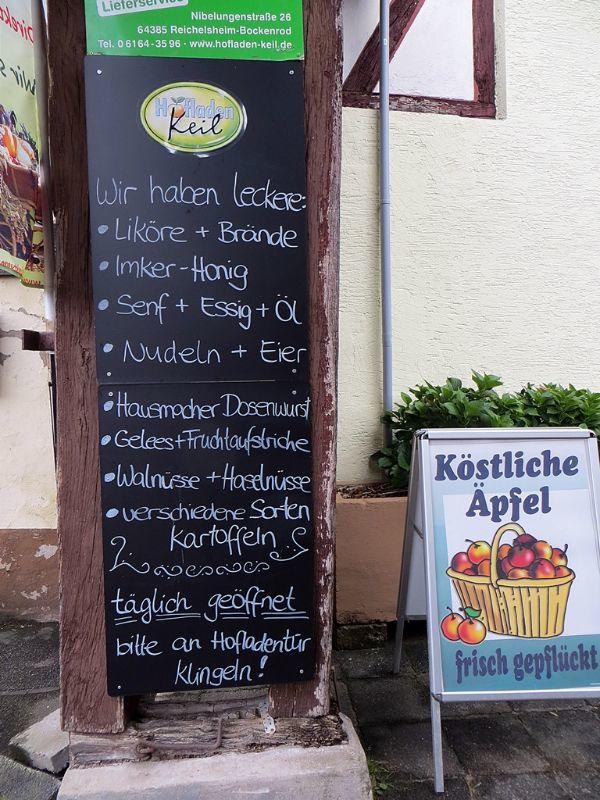 Lieferservice
Nibelungenstraße 26
64385 Reichelsheim-Bockenrod
Tel. 0 6164-35 96 · www.hofladen-keil.de
Hofladen
Keil
Wir haben leckere:
• Liköre + Brände
• Imker-Honig
• Senf + Essig + Öl
• Nudeln + Eier
• Hausmacher Dosenwurst
• Gelees + Fruchtaufstriche
• Walnüsse + Haselnüsse
• verschiedene Sorten
Kartoffeln
täglich geöffnet
bitte an Hofladentür
klingeln!
Köstliche
Äpfel
frisch gepflückt